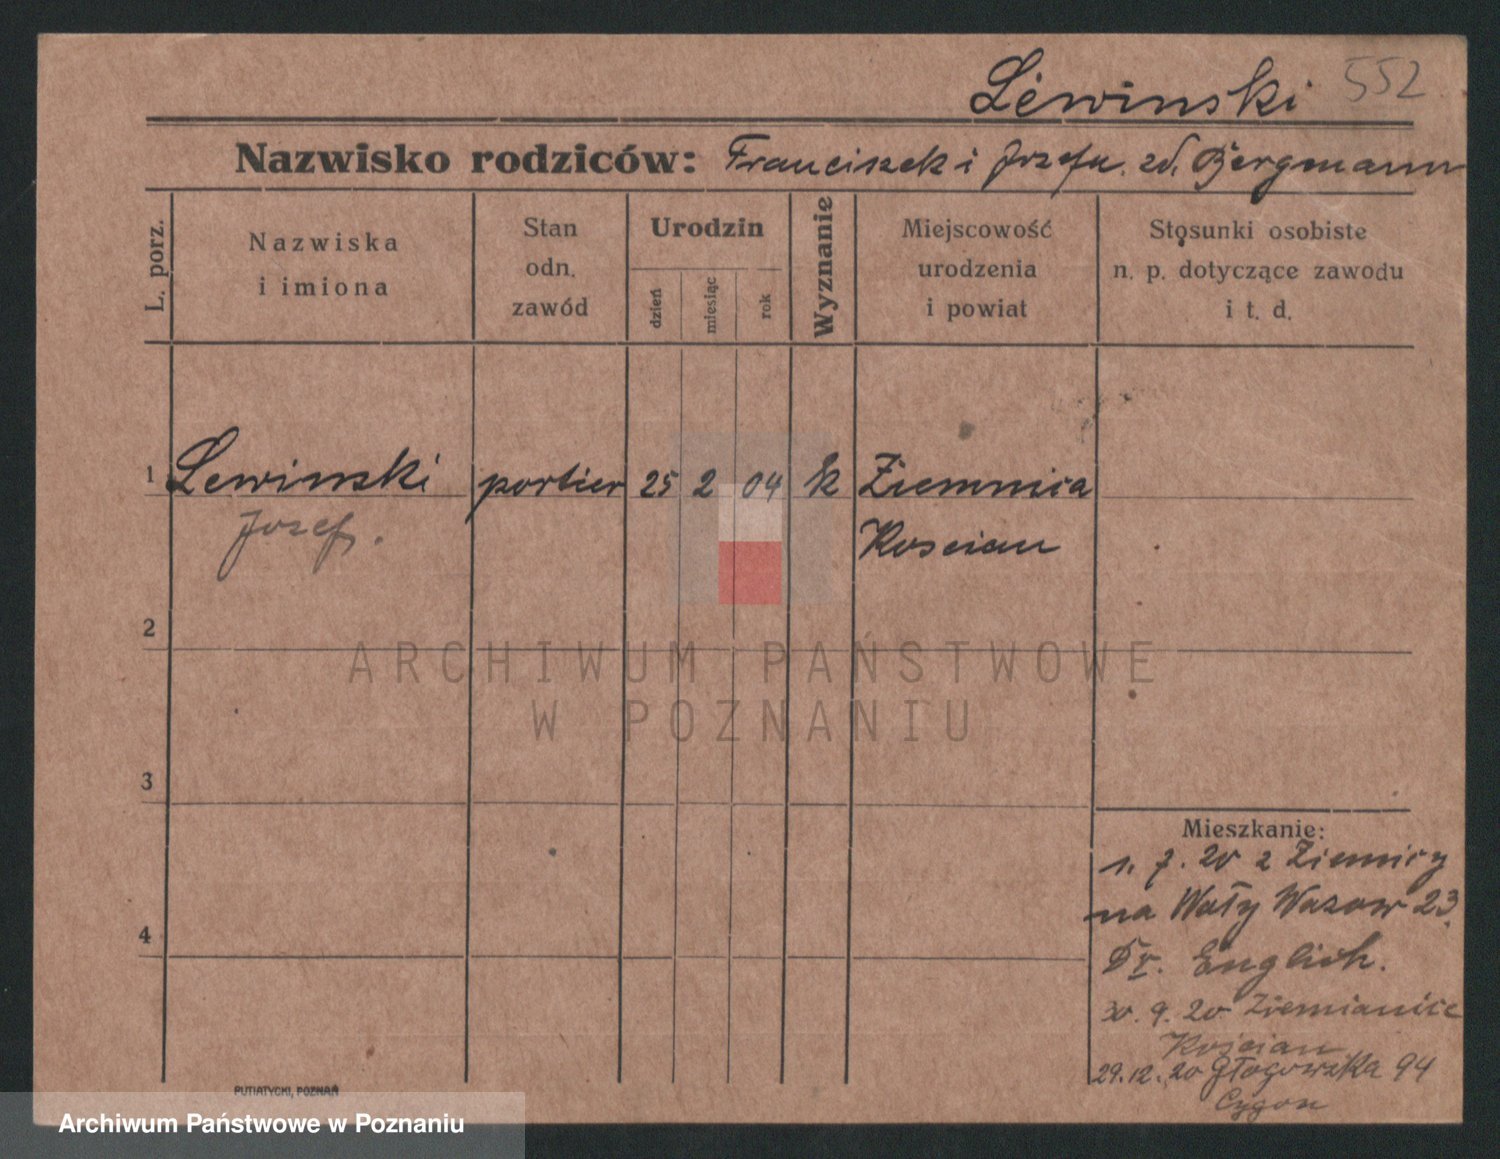 Lewinski 552
Nazwisko rodziców: Franciszek i Józefa zd. Bergmann
L. porz.
Nazwiska
i imiona
Stan
odn.
zawód
Urodzin
dzień
miesiąc
rok
Wyznanie
Miejscowość
urodzenia
i powiat
Stosunki osobiste
n. p. dotyczące zawodu
i t. d.
1 Lewinski portier 25 2 04 k Ziemnica
Jozef. Koscian
2
ARCHIWUM PAŃSTWOWE
W POZNANIU
3
Mieszkanie:
1. 7. 20 z Ziemnicy
na Wały Wazow 23
4
Dr. Englich.
30. 9. 20 Ziemianice
Kościan
29.12.20 Głogowska 94
PUTIATYCKI, POZNAŃ
Archiwum Państwowe w Poznaniu